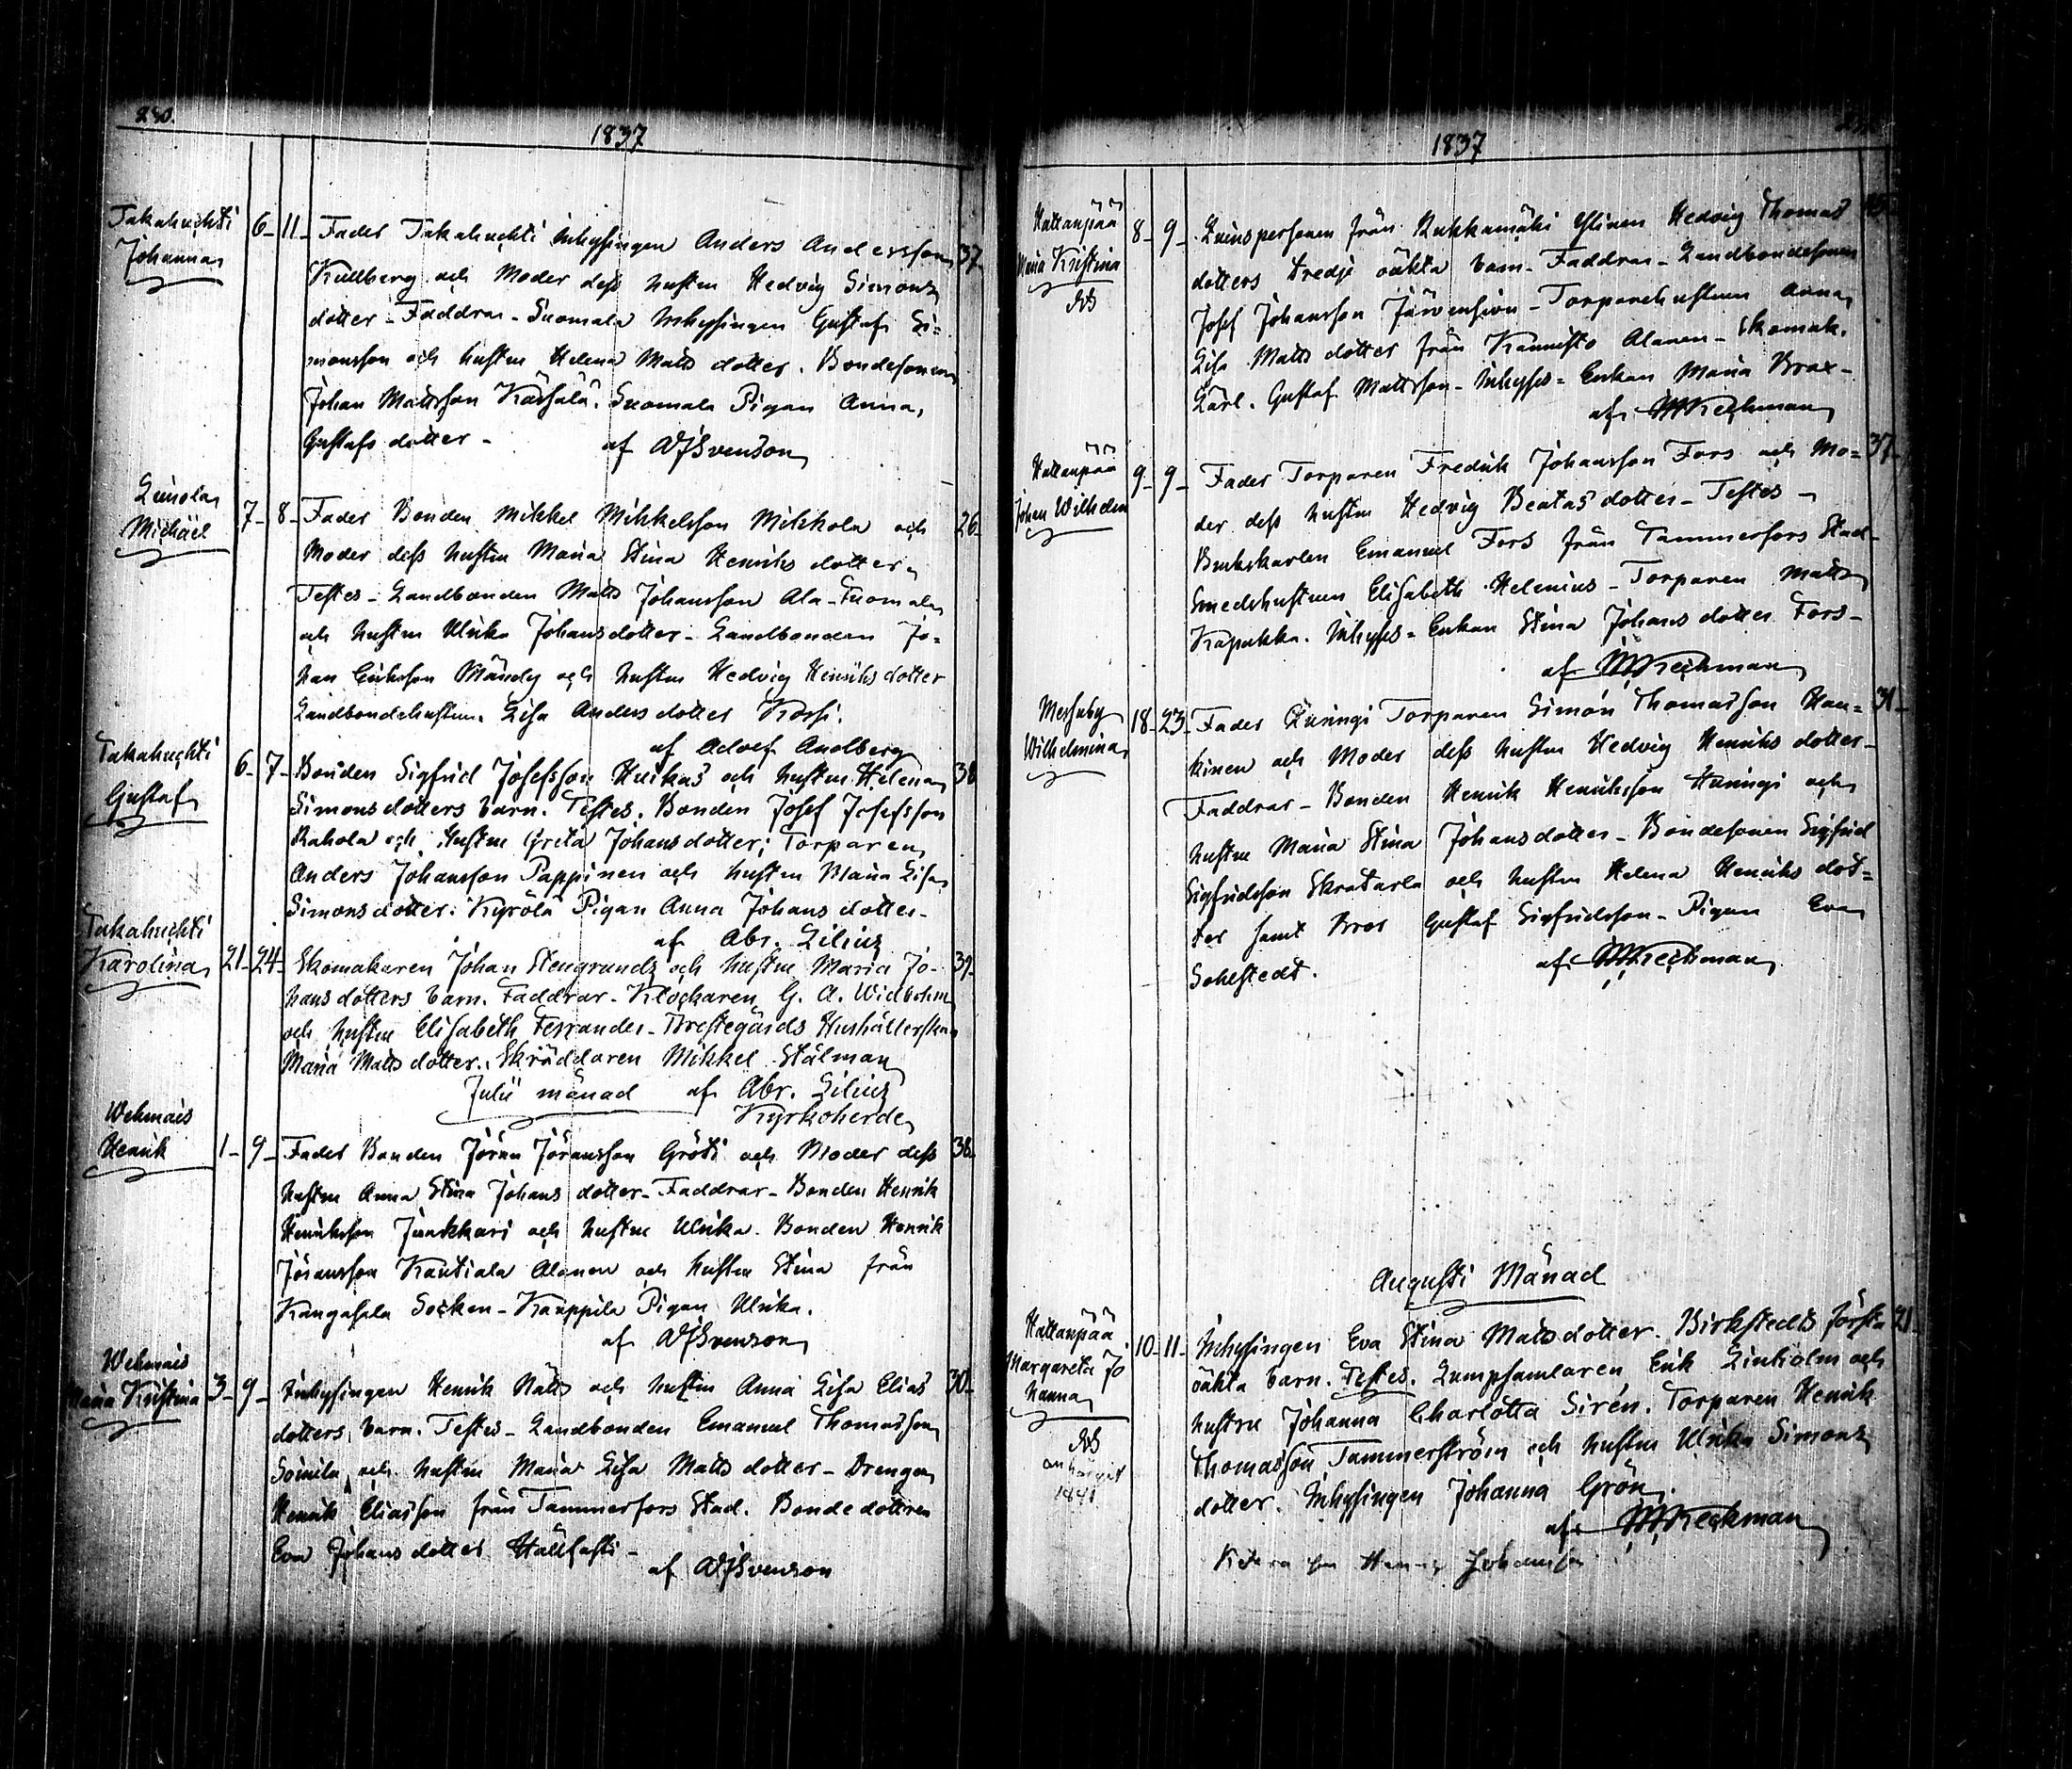 280.
1837
Takahuchti
Johanna
6- 11- Fader Takahuchti Inhysingen Anders Andersson 37-
Kullberg och Moder deß hustru Hedvig Simons
dotter - Faddrar - Suomala Inhysingen Gustaf Si=
monsson och hustru Helena Matts dotter. Bondesonen
Johan Mattsson Kärsälä. Suomala Pigan Anna
Gustafs dotter - af AJSvenson
Michäel
7- 8- Fader Bonden Mikkel Mikkelsson Mikkola och 26-
Moder deß hustru Maria Stina Henriks dotter
Testes - Landbonden Matts Johansson Ala-Tuomala
och hustru Ulrika Johansdotter - Landbonden Jo=
han Eriksson Mändy och hustru Hedvig Henriksdotter
Landbondehustrun Lisa Anders dotter Korsi.
af Adolf Andberg
Takahuchti
Gustaf
6- 7- Bonden Sigfrid Josefsson Kuikas och hustru Helena 38
Simonsdotters barn. Testes. Bonden Josef Josefsson
Rahola och hustru Greta Johansdotter; Torparen
Anders Johansson Pappinen och hustru Maria Lisa
Simonsdotter. Kyrölä Pigan Anna Johans dotter -
af Abr. Lilius
Takahuchti
Karolina
21- 24- Skomakaren Johan Stengrunds och hustru Maria Jo- 39-
hans dotters barn. Faddrar - Klockaren G. A. Widbohm
och hustru Elisabeth Ferrander - Prestegårds Hushållerskan
Maria Matts dotter. Skräddaren Mikkel Stålman
Julii månad af Abr. Lilius
Kyrkoherde
Wehmais
Henrik
1- 9- Fader Bonden Jöran Jöransson Gröti och Moder deß 38-
hustru Anna Stina Johans dotter - Faddrar - Bonden Henrik
Henriksson Junkkari och hustru Ulrika. Bonden Henrik
Jöransson Kautiala Alanen och hustru Stina från
Kangasala Socken - Kauppila Pigan Ulrika.
af AJSvenson
Wehmais
Maria Kristina
3- 9- Inhysingen Henrik Matts och hustru Anna Lisa Elias 30-
dotters barn. Testes - Landbonden Emanuel Thomasson
Soinila och hustru Maria Lisa Matts dotter - Drengen
Henrik Eliasson från Tammerfors Stad. Bondedottren
Eva Johans dotter Hallfasti -
af AJSvenson
1837
Hattanpää
Maria Kristina
8- 9- Qvinspersonen från Rukkamäki Ylinen Hedvig Thomas
dotters tredje oäkta barn - Faddrar - Landbondesonen
Josef Johansson Järvensivu - Torparehustrun Anna
Lisa Matts dotter från Kannisto Alanen - Skomak.
Lärl. Gustaf Mattsson - Inhyses = Enkan Maria Brax -
af MKeckman
Hattanpää
Johan Wilhelm
9- 9- Fader Torparen Fredrik Johansson Fors och Mo= 37-
der deß hustru Hedvig Beatas dotter - Testes -
Brukskarlen Emanuel Fors från Tammerfors Stad -
Smedshustrun Elisabeth Helenius - Torparen Matts
Kapakka. Inhyses = Enkan Stina Johans dotter Fors -
af MKeckman
Messuby
Wilhelmina
18- 23- Fader Huringi Torparen Simon Thomasson Han= 31-
kinen och Moder deß hustru Hedvig Henriks dotter -
Faddrar - Bonden Henrik Henriksson Huringi och
hustru Maria Stina Johansdotter - Bondesonen Sigfrid
Sigfridsson Skratarla och hustru Helena Henriks dot=
ter samt Bror Gustaf Sigfridsson - Pigan Eva
Sohlstedt. af MKeckman
Augusti Månad
Hattanpää
Margareta Jo
hanna
1841
10- 11- Inhysingen Eva Stina Mattsdotter Birkstedts första 21-
oäkta barn. Testes. Lumpsamlaren Erik Lindholm och
hustru Johanna Charlotta Sirén. Torparen Henrik
Thomasson Tammerström och hustru Ulrika Simons
dotter. Inhysingen Johanna Grön.
af MKeckman